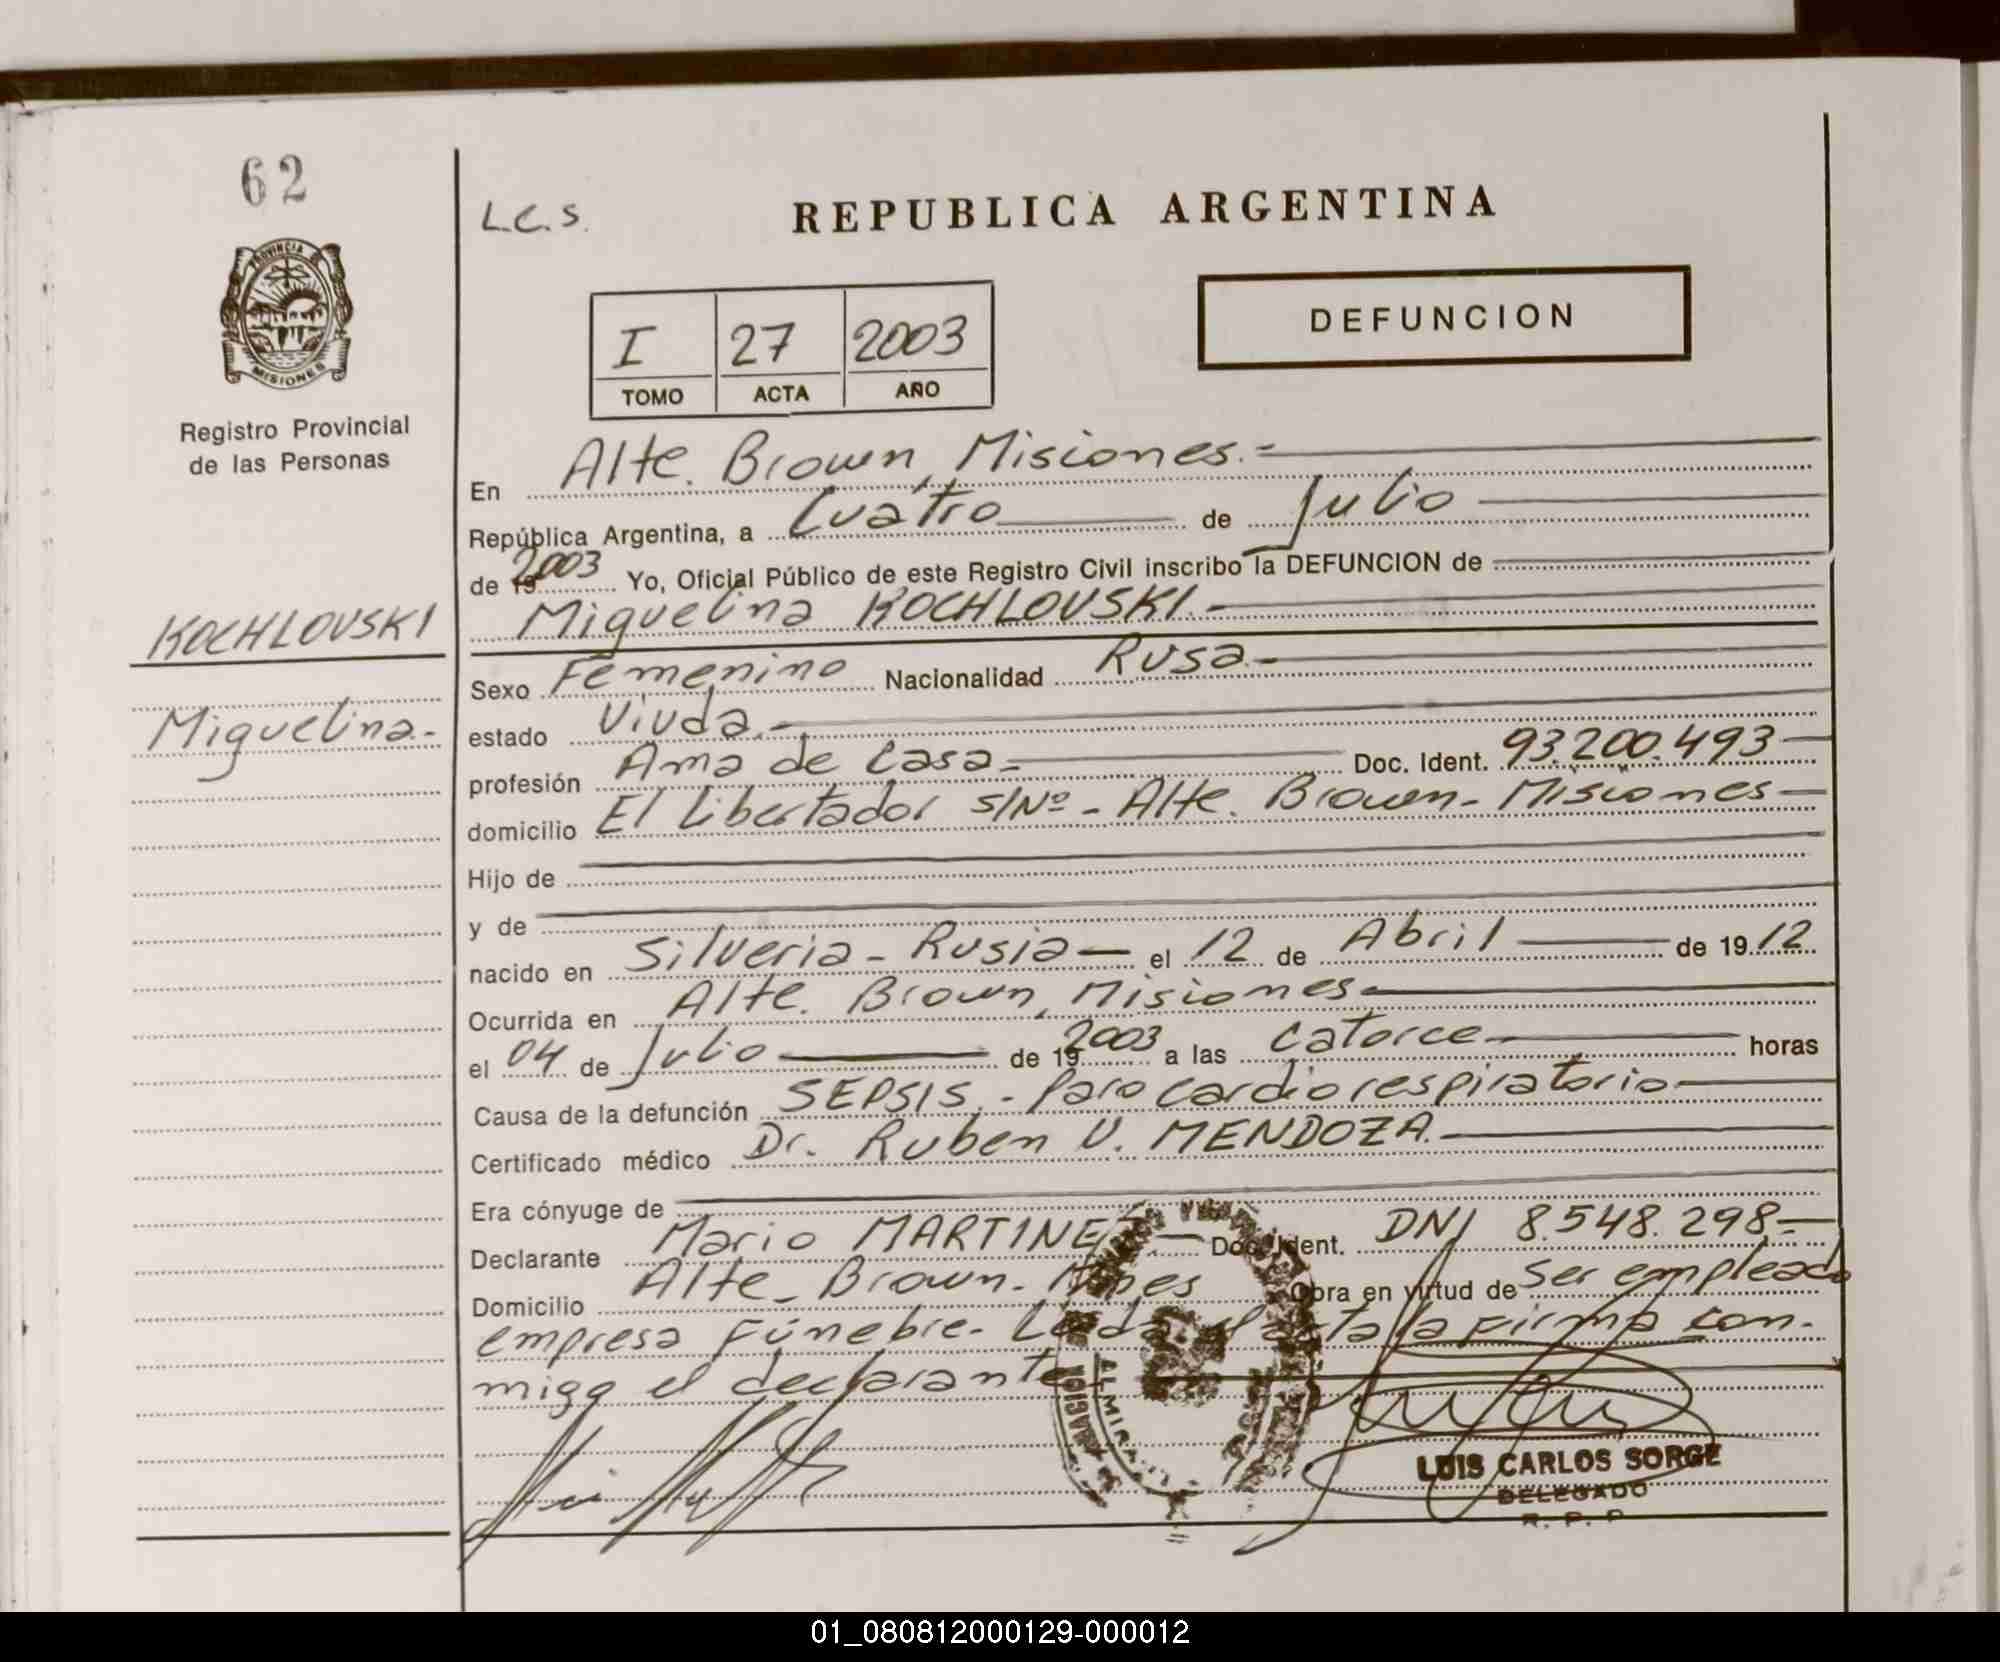 62
PROVINCIA DE
MISIONES
Registro Provincial
de las Personas
KOCHLOVSKI
Miguelina.-
L.C.S.
REPUBLICA ARGENTINA
I 27 2003
TOMO ACTA AÑO
DEFUNCION
En Alte. Brown, Misiones.-
República Argentina, a Cuatro de Julio
de 19 2003 Yo, Oficial Público de este Registro Civil inscribo la DEFUNCION de
Miguelina KOCHLOVSKI.-
Sexo Femenino Nacionalidad Rusa.-
estado Viuda.-
profesión Ama de Casa.- Doc. Ident. 93.200.493-
domicilio El Libertador S/Nº - Alte. Brown - Misiones-
Hijo de
y de
nacido en Silveria - Rusia- el 12 de Abril de 19 12
Ocurrida en Alte. Brown, Misiones-
el 04 de Julio de 19 2003 a las catorce- horas
Causa de la defunción SEPSIS.- Paro cardiorespiratorio-
Certificado médico Dr. Ruben V. MENDOZA.-
Era cónyuge de
Declarante Mario MARTINEZ- Doc. Ident. DNI 8.548.298.-
Domicilio Alte. Brown - Mnes Obra en virtud de ser empleado
empresa Fúnebre- Leida el acta la firma con-
migo el declarante
ALMIRA
LUIS CARLOS SORGE
DELEGADO
R. P. P
01_080812000129-000012